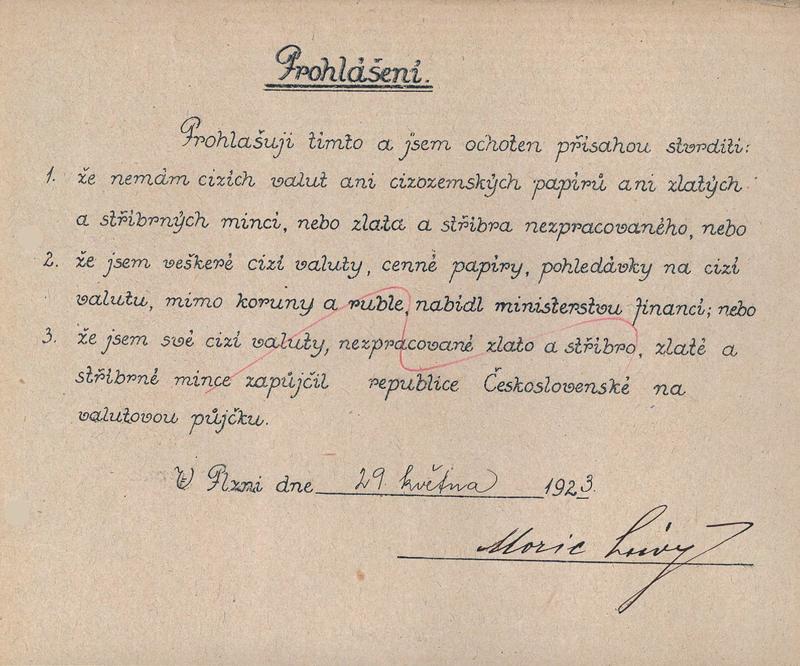 Prohlášení.
Prohlašuji tímto a jsem ochoten přísahou stvrditi:
1. že nemám cizích valut ani cizozemských papírů ani zlatých
a stříbrných mincí, nebo zlata a stříbra nezpracovaného, nebo
2. že jsem veškeré cizí valuty, cenné papíry, pohledávky na cizí
valutu, mimo koruny a ruble, nabídl ministerstvu financí; nebo
3. že jsem své cizí valuty, nezpracované zlato a stříbro, zlaté a
stříbrné mince zapůjčil republice Československé na
valutovou půjčku.
V Plzni dne 29. května 1923.
Moric Löwy